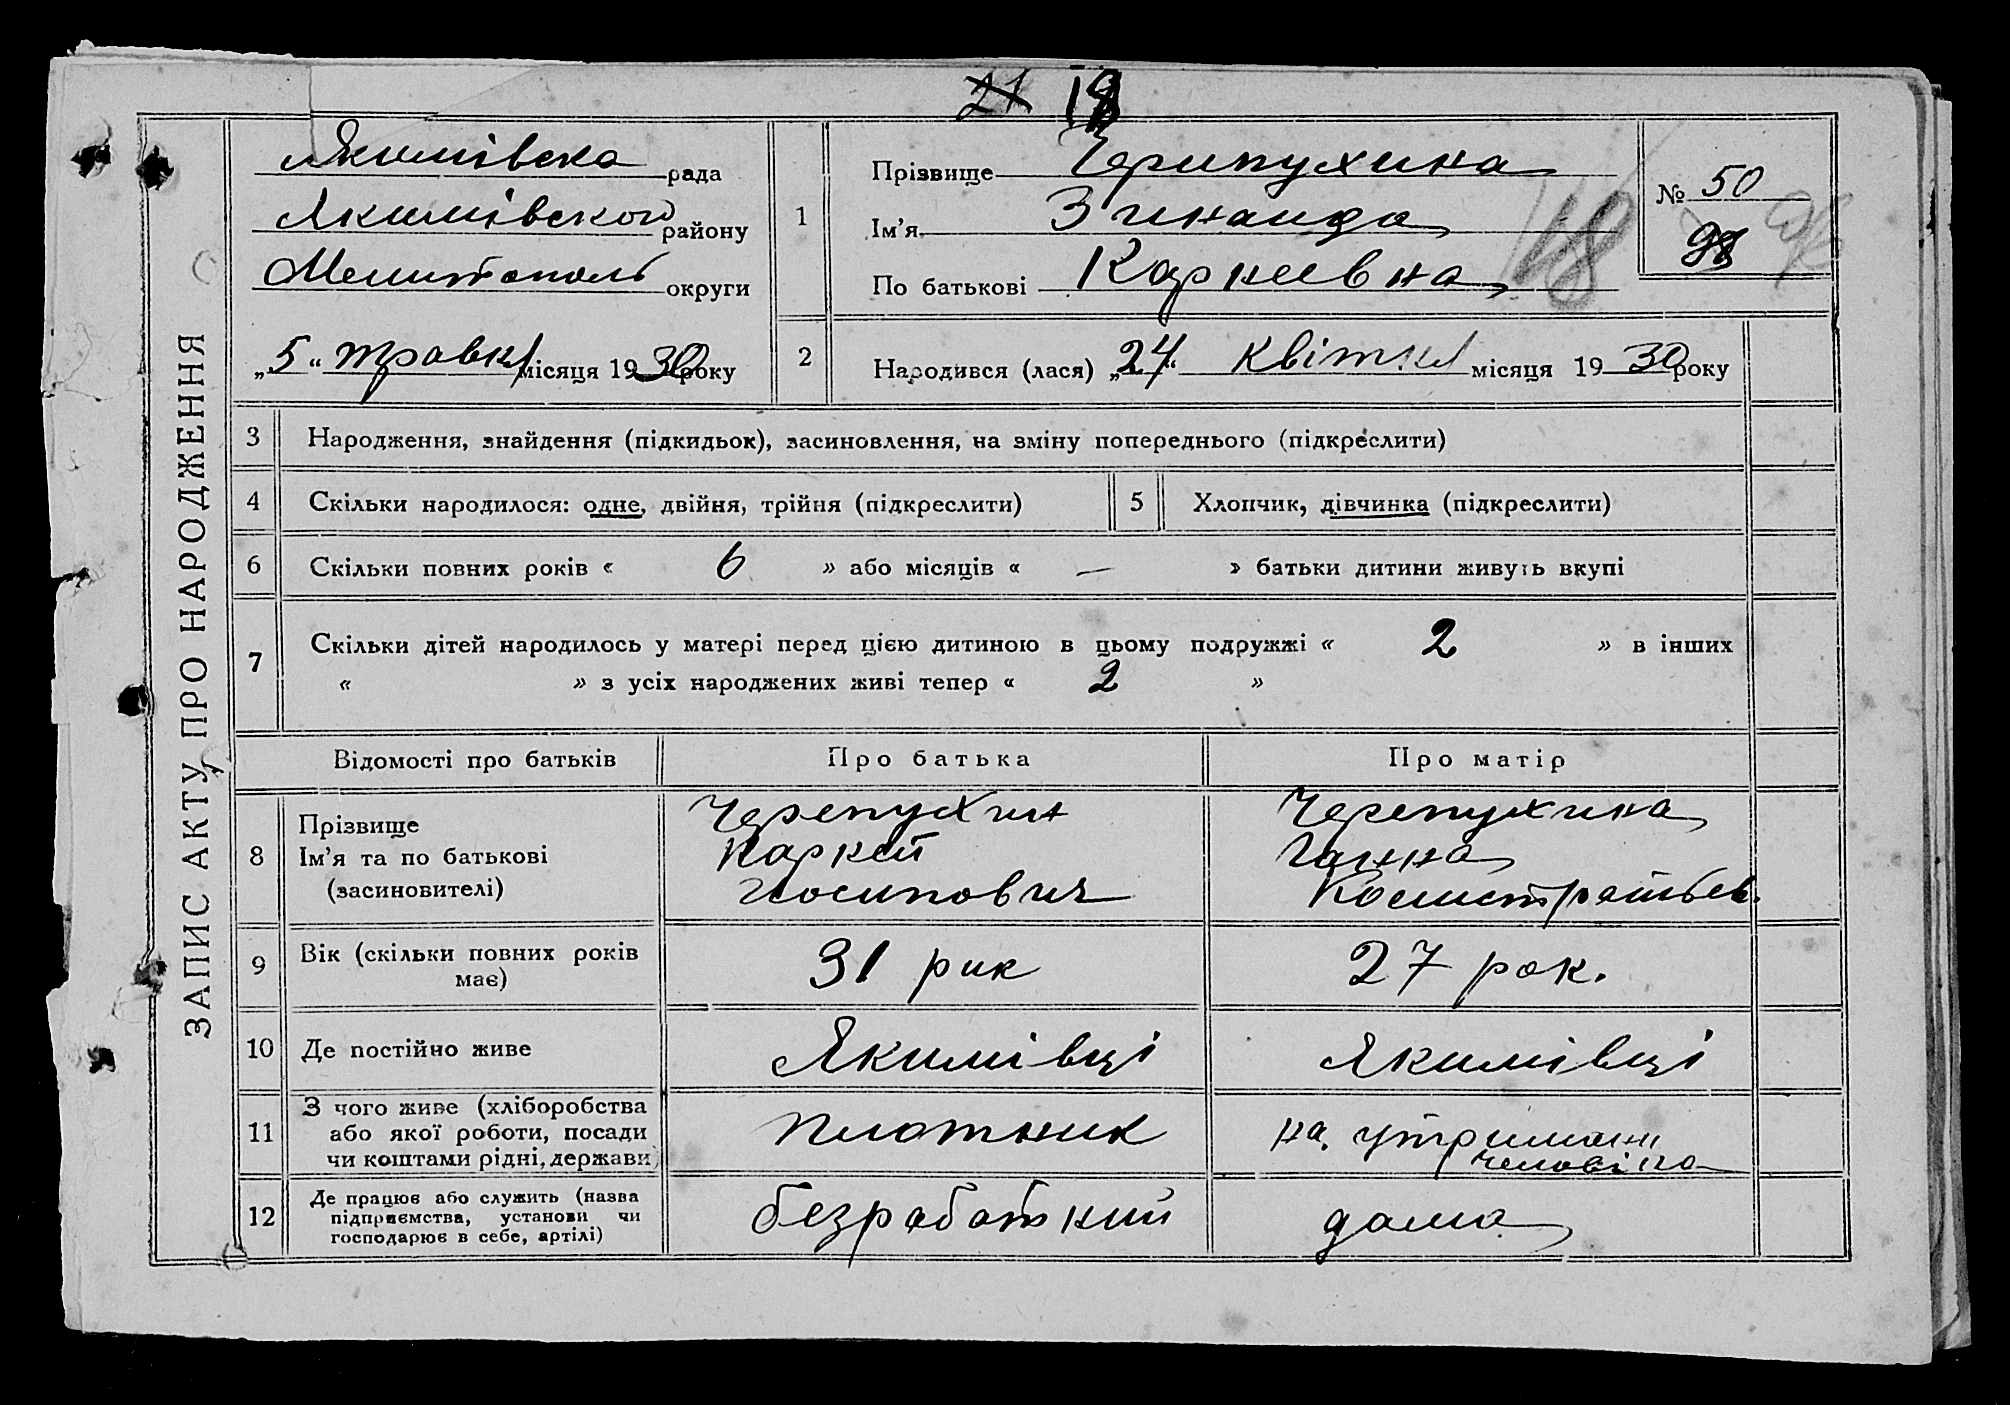 21
ЗАПИС АКТУ ПРО НАРОДЖЕННЯ
Якимівска рада
Якимівского району
Мелитополь округи
„5“ травня місяця 1930 року
1
Прізвище Черипухина
Ім’я Зинаида
По батькові Карпеевна
№ 50
98
48
2
Народився (лася) „24“ квітня місяця 1930 року
3 Народження, знайдення (підкидьок), засиновлення, на зміну попереднього (підкреслити)
4 Скільки народилося: одне, двійня, трійня (підкреслити)
5 Хлопчик, дівчинка (підкреслити)
6 Скільки повних років « 6 » або місяців « — » батьки дитини живуть вкупі
7 Скільки дітей народилось у матері перед цією дитиною в цьому подружжі « 2 » в інших
« » з усіх народжених живі тепер « 2 »
Відомості про батьків Про батька Про матір
8 Прізвище
Ім’я та по батькові
(засиновителі)
Черепухин
Карпей
Иосипович
Черепухина
Ганна
9 Вік (скільки повних років
має)
31 рик
27 рок.
10 Де постійно живе Якимівці Якимівці
11 З чого живе (хліборобства
або якої роботи, посади
чи коштами рідні, держави)
плотник
на утримани
человіка
12 Де працює або служить (назва
підприємства, установи чи
господарює в себе, артілі)
безработний
дома